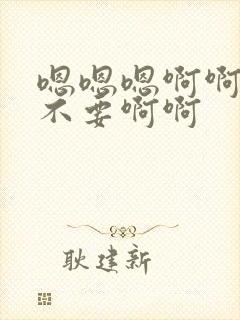 嗯嗯嗯啊啊
不要啊啊
耿建新